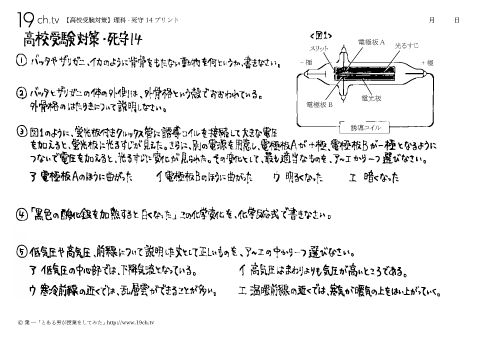 19ch.tv 【高校受験対策】理科・死守14プリント 月 日
高校受験対策・死守14
<図1>
スリット
電極板A
光るすじ
-極
+極
電極板B
蛍光板
誘導コイル
① バッタやザリガニ、イカのように背骨をもたない動物を何というか、書きなさい。
② バッタとザリガニの体の外側は、外骨格という殻でおおわれている。
外骨格のはたらきについて説明しなさい。
③ 図1のように、蛍光板付きクルックス管に誘導コイルを接続して大きな電圧
を加えると、蛍光板に光るすじが見られた。さらに、別の電源を用意し、電極板Aが+極、電極板Bが-極となるように
つないで電圧を加えると、光るすじに変化が見られた。その変化として、最も適当なものを、ア〜エから1つ選びなさい。
ア 電極板Aのほうに曲がった イ 電極板Bのほうに曲がった ウ 明るくなった エ 暗くなった
④ 「黒色の酸化銀を加熱すると白くなった」この化学変化を、化学反応式で書きなさい。
⑤ 低気圧や高気圧、前線について説明した文として正しいものを、ア〜エの中から1つ選びなさい。
ア 低気圧の中心部では、下降気流となっている。 イ 高気圧はまわりよりも気圧が高いところである。
ウ 寒冷前線の近くでは、乱層雲ができることが多い。 エ 温暖前線の近くでは、寒気が暖気の上をはい上がっていく。
© 葉一「とある男が授業をしてみた」http://www.19ch.tv